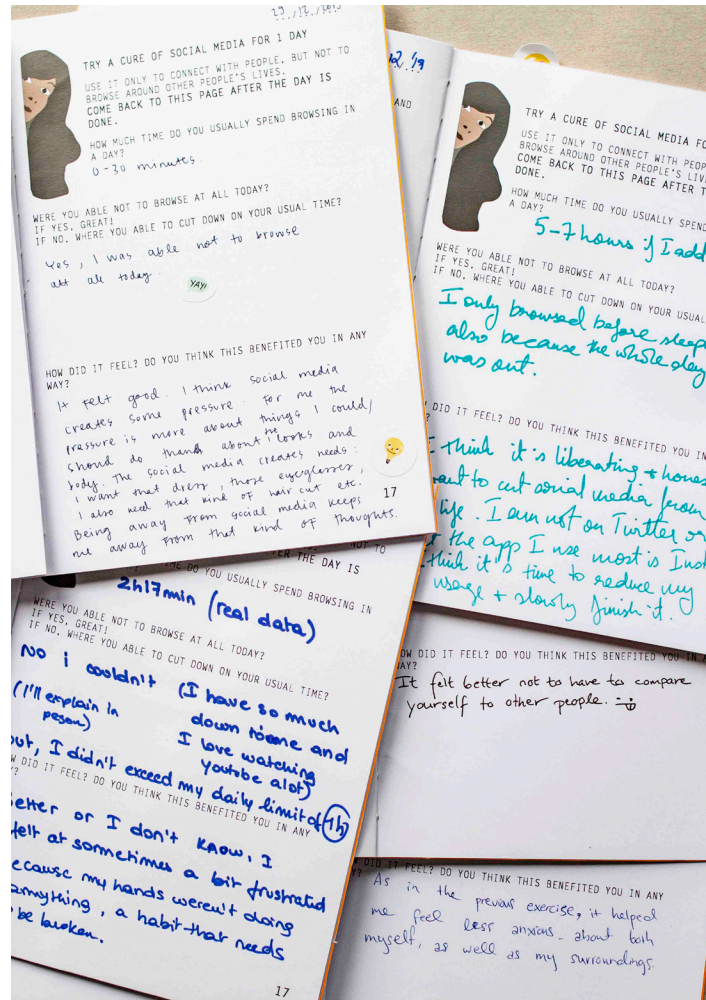 29/12/2019
TRY A CURE OF SOCIAL MEDIA FOR 1 DAY
USE IT ONLY TO CONNECT WITH PEOPLE, BUT NOT TO
BROWSE AROUND OTHER PEOPLE'S LIVES.
COME BACK TO THIS PAGE AFTER THE DAY IS
DONE.
HOW MUCH TIME DO YOU USUALLY SPEND BROWSING IN
A DAY?
0-30 minutes.
WERE YOU ABLE NOT TO BROWSE AT ALL TODAY?
IF YES, GREAT!
IF NO, WHERE YOU ABLE TO CUT DOWN ON YOUR USUAL TIME?
Yes, I was able not to browse
att all today.
YAY!
HOW DID IT FEEL? DO YOU THINK THIS BENEFITED YOU IN ANY
WAY?
It felt good. I think social media
creates some pressure. For me the
pressure is more about things I could/
should do than about the looks and
body. The social media creates needs:
I want that dress, those eyeglasses,
I also need that kind of hair cut etc.
Being away from social media keeps
me away from that kind of thoughts.
17
12.'19
AND
TRY A CURE OF SOCIAL MEDIA FO
USE IT ONLY TO CONNECT WITH PEOP
BROWSE AROUND OTHER PEOPLE'S LIV
COME BACK TO THIS PAGE AFTER T
DONE.
HOW MUCH TIME DO YOU USUALLY SPEND
A DAY?
5-7 hours if I add
WERE YOU ABLE NOT TO BROWSE AT ALL TODAY?
IF YES, GREAT!
IF NO, WHERE YOU ABLE TO CUT DOWN ON YOUR USUAL
I only browsed before sleep
also because the whole day
was out.
DID IT FEEL? DO YOU THINK THIS BENEFITED YOU IN
think it's liberating + hones
want to cut social media from
life. I am not on Twitter or
the app I use most is Inst
think it's time to reduce my
usage + slowly finish it.
NOT TO
ER THE DAY IS
ME DO YOU USUALLY SPEND BROWSING IN
2h17min (real data)
WERE YOU ABLE NOT TO BROWSE AT ALL TODAY?
IF YES, GREAT!
IF NO, WHERE YOU ABLE TO CUT DOWN ON YOUR USUAL TIME?
No i couldn't (I have so much
(I'll explain in person) down time and
I love watching
youtube alot)
but, I didn't exceed my daily limit of 1h
W DID IT FEEL? DO YOU THINK THIS BENEFITED YOU IN ANY
Y?
etter or I don't know, I
felt at sometimes a bit frustrated
ecause my hands weren't doing
anything, a habit that needs
be broken.
17
OW DID IT FEEL? DO YOU THINK THIS BENEFITED YOU IN A
WAY?
It felt better not to have to compare
yourself to other people.
DID IT FEEL? DO YOU THINK THIS BENEFITED YOU IN ANY
?
As in the previous exercise, it helped
me feel less anxious about both
myself, as well as my surroundings.